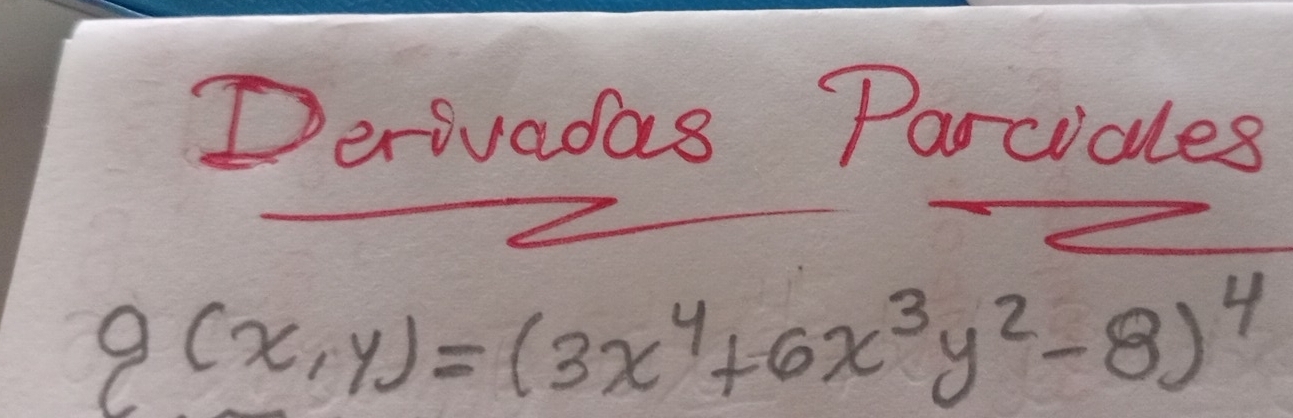 Derivadas Parciales
g(x,y)=(3x⁴+6x³y²-8)⁴